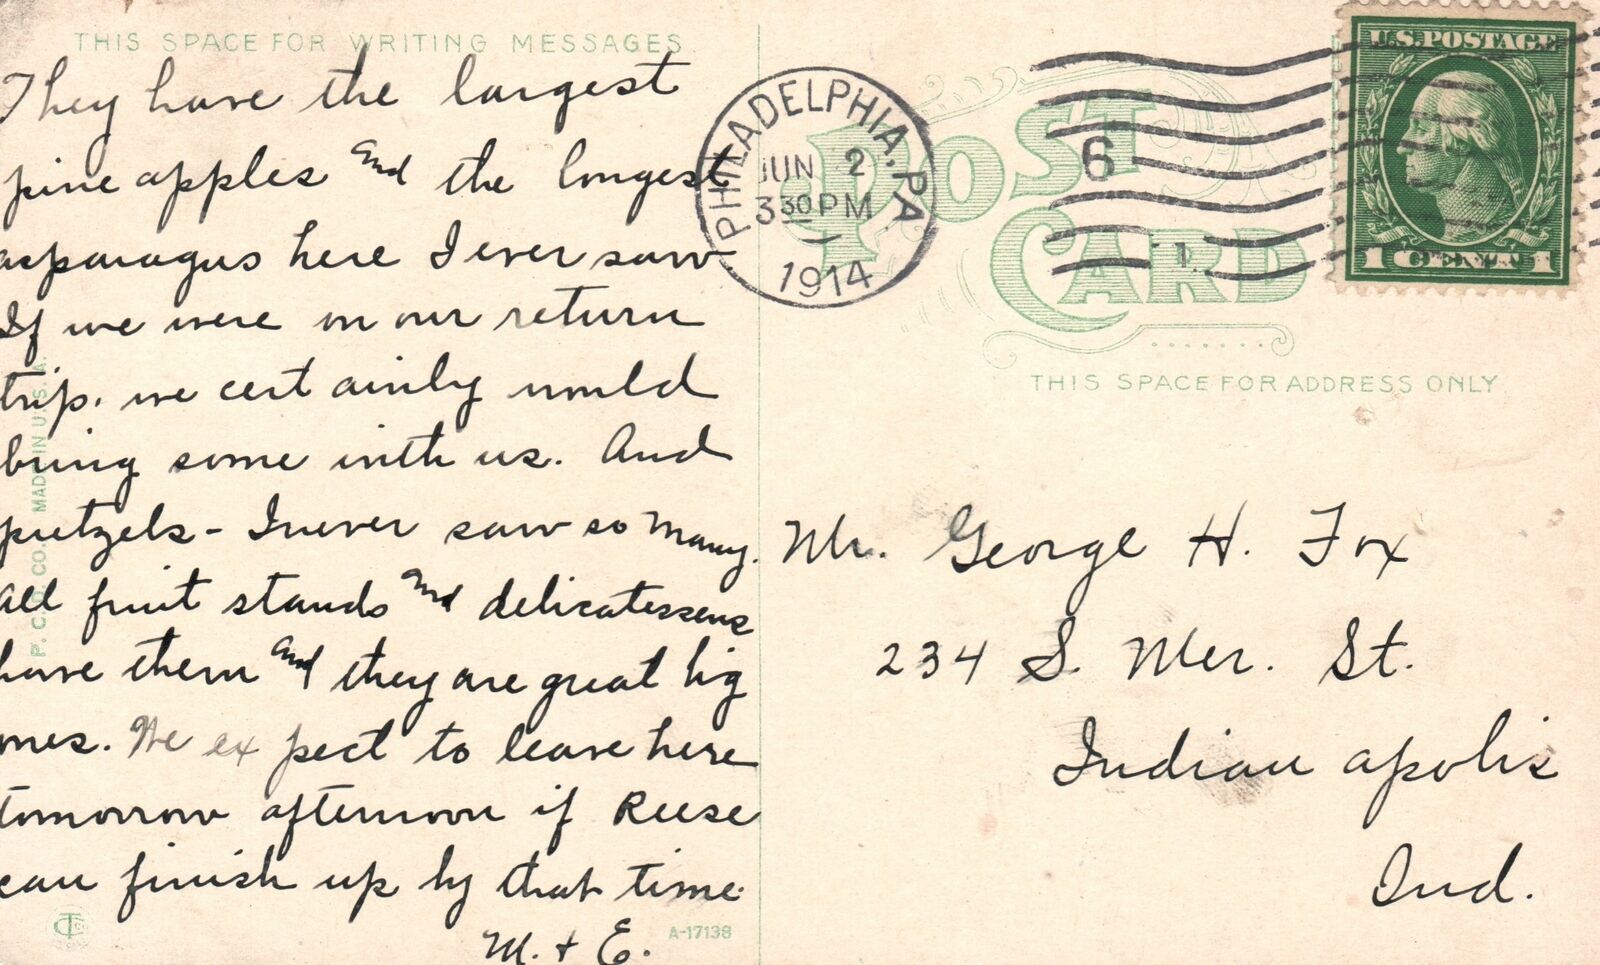 THIS SPACE FOR WRITING MESSAGES
They have the largest
pine apples and the longest
asparagus here I ever saw
If we were on our return
trip. we cert ainly would
bring some with us. And
pretzels - I never saw so many.
All fruit stands and delicatessens
have them and they are great big
ones. We ex pect to leave here
tomorrow afternoon if Reese
can finish up by that time.
M. + E.
A-17138
MADE IN U.S.A.
PHILADELPHIA. PA
JUN 2
3 30 PM
1914
6
1
U.S. POSTAGE
1 CENT 1
POST
CARD
THIS SPACE FOR ADDRESS ONLY
Mr. George H. Fox
234 S. Mer. St.
Indian apolis
Ind.